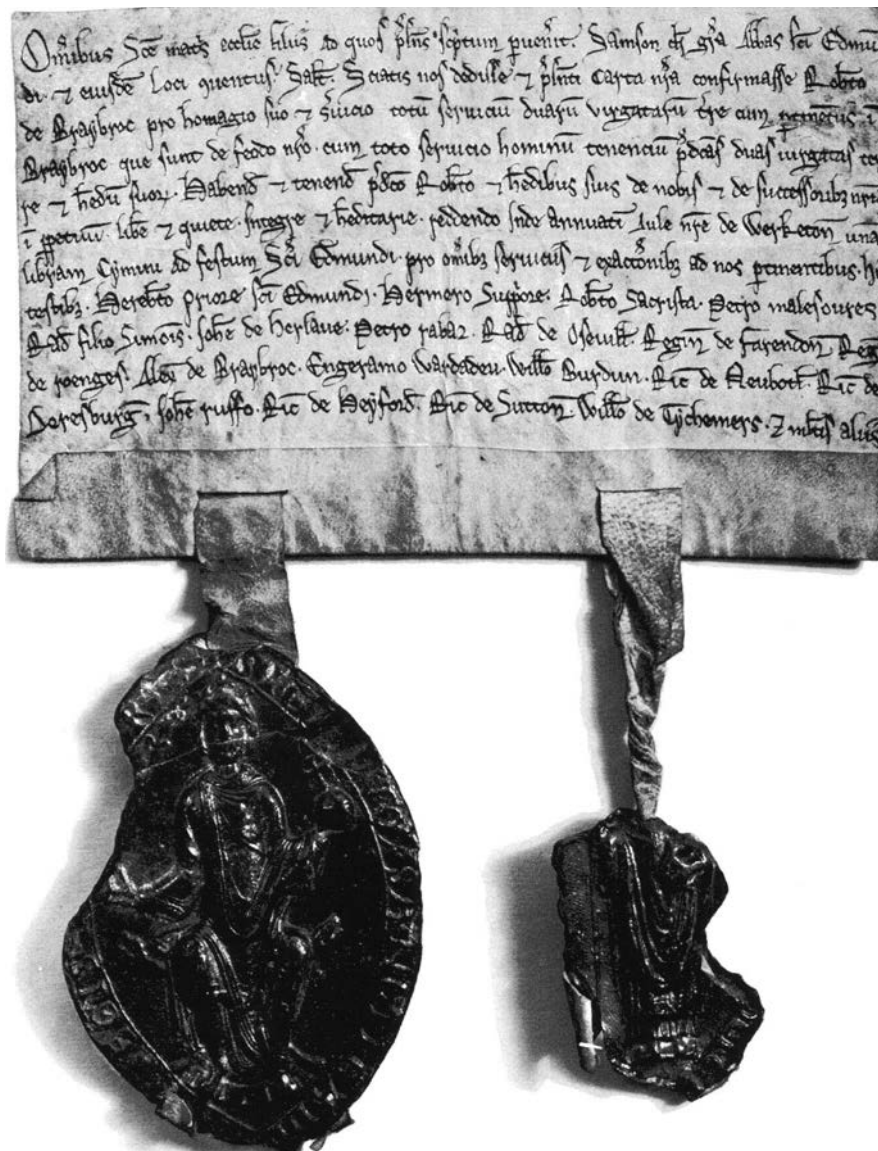 Om̅ibus Sc̅e mat̅s eccl̅ie filiis ad quos p̅sens sc̅ptum peruen̅it. Samson d̅i gr̅a Abbas sc̅i Edmu̅
di ⁊ eiusde̅ loci Conuentus. Salt̅. Sciatis nos dedisse ⁊ p̅senti Carta n̅ra confirmasse Rob̅to
de Braybroc pro homagio suo ⁊ s̅uicio totu̅ seruiciu̅ duaru̅ virgataru̅ t̅re cum p̱tinentiis i̅
Braybroc que sunt de feodo n̅ro. cum toto seruicio hominu̅ tenenciu̅ p̅d̅cas duas uirgatas ter
re ⁊ h̅edu̅ suoꝝ. Habend̅ ⁊ tenend̅ p̅d̅co Rob̅to ⁊ h̅edibus suis de nobis ⁊ de successoribꝫ n̅ris
i̅ p̱petuu̅. lib̅e ⁊ quiete. integre ⁊ h̅editarie. reddendo inde annuati̅ Aule n̅re de Werketon̅ una̅
libram Cymini ad festum Sc̅i Edmundi. pro om̅ibꝫ seruiciis ⁊ exact̅onibꝫ ad nos p̱tinentibus. Hi
testibꝫ. Hereb̅to priore sc̅i Edmundi. Hermero Supp̅ore. Rob̅to Sacrista. Petro malesoures
Rad̅ filio Simo̅is. Joh̅e de herlaue. Petro rabaz. Rad̅ de Oseuill̅. Regin̅ de Farendon̅ Reg
de roenges. Alex̅ de Braybroc. Engeramo Will̅o Burdun. Ric̅ de Neubotl̅. Ric̅ de
Deresburg̅. Joh̅e ruffo. Ric̅ de Heyford̅. Ric̅ de Sutton̅. Will̅o de Tychemers. ⁊ m̅ltis aliis